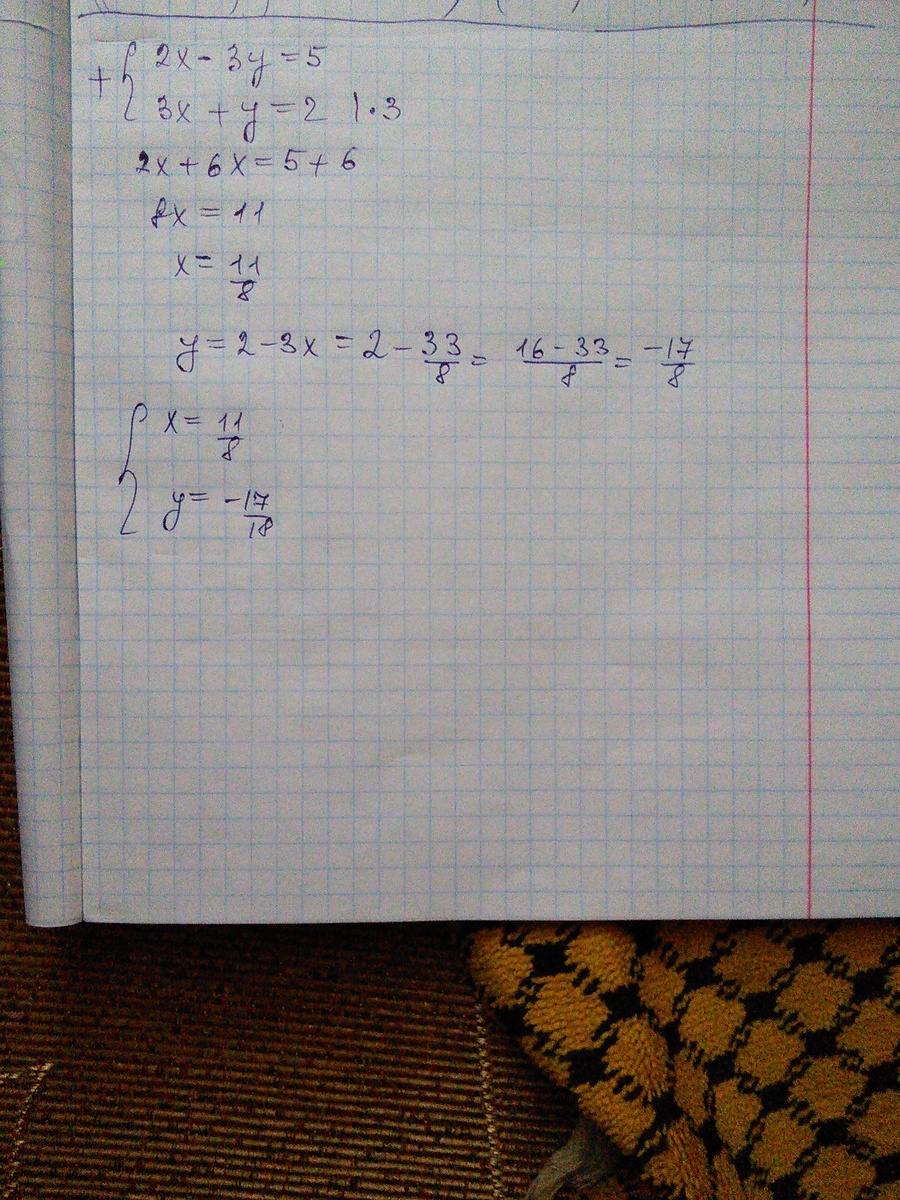 + { 2x - 3y = 5
3x + y = 2 | · 3
2x + 6x = 5 + 6
8x = 11
x = 11/8
y = 2 - 3x = 2 - 33/8 = 16 - 33/8 = -17/8
{ x = 11/8
y = -17/18